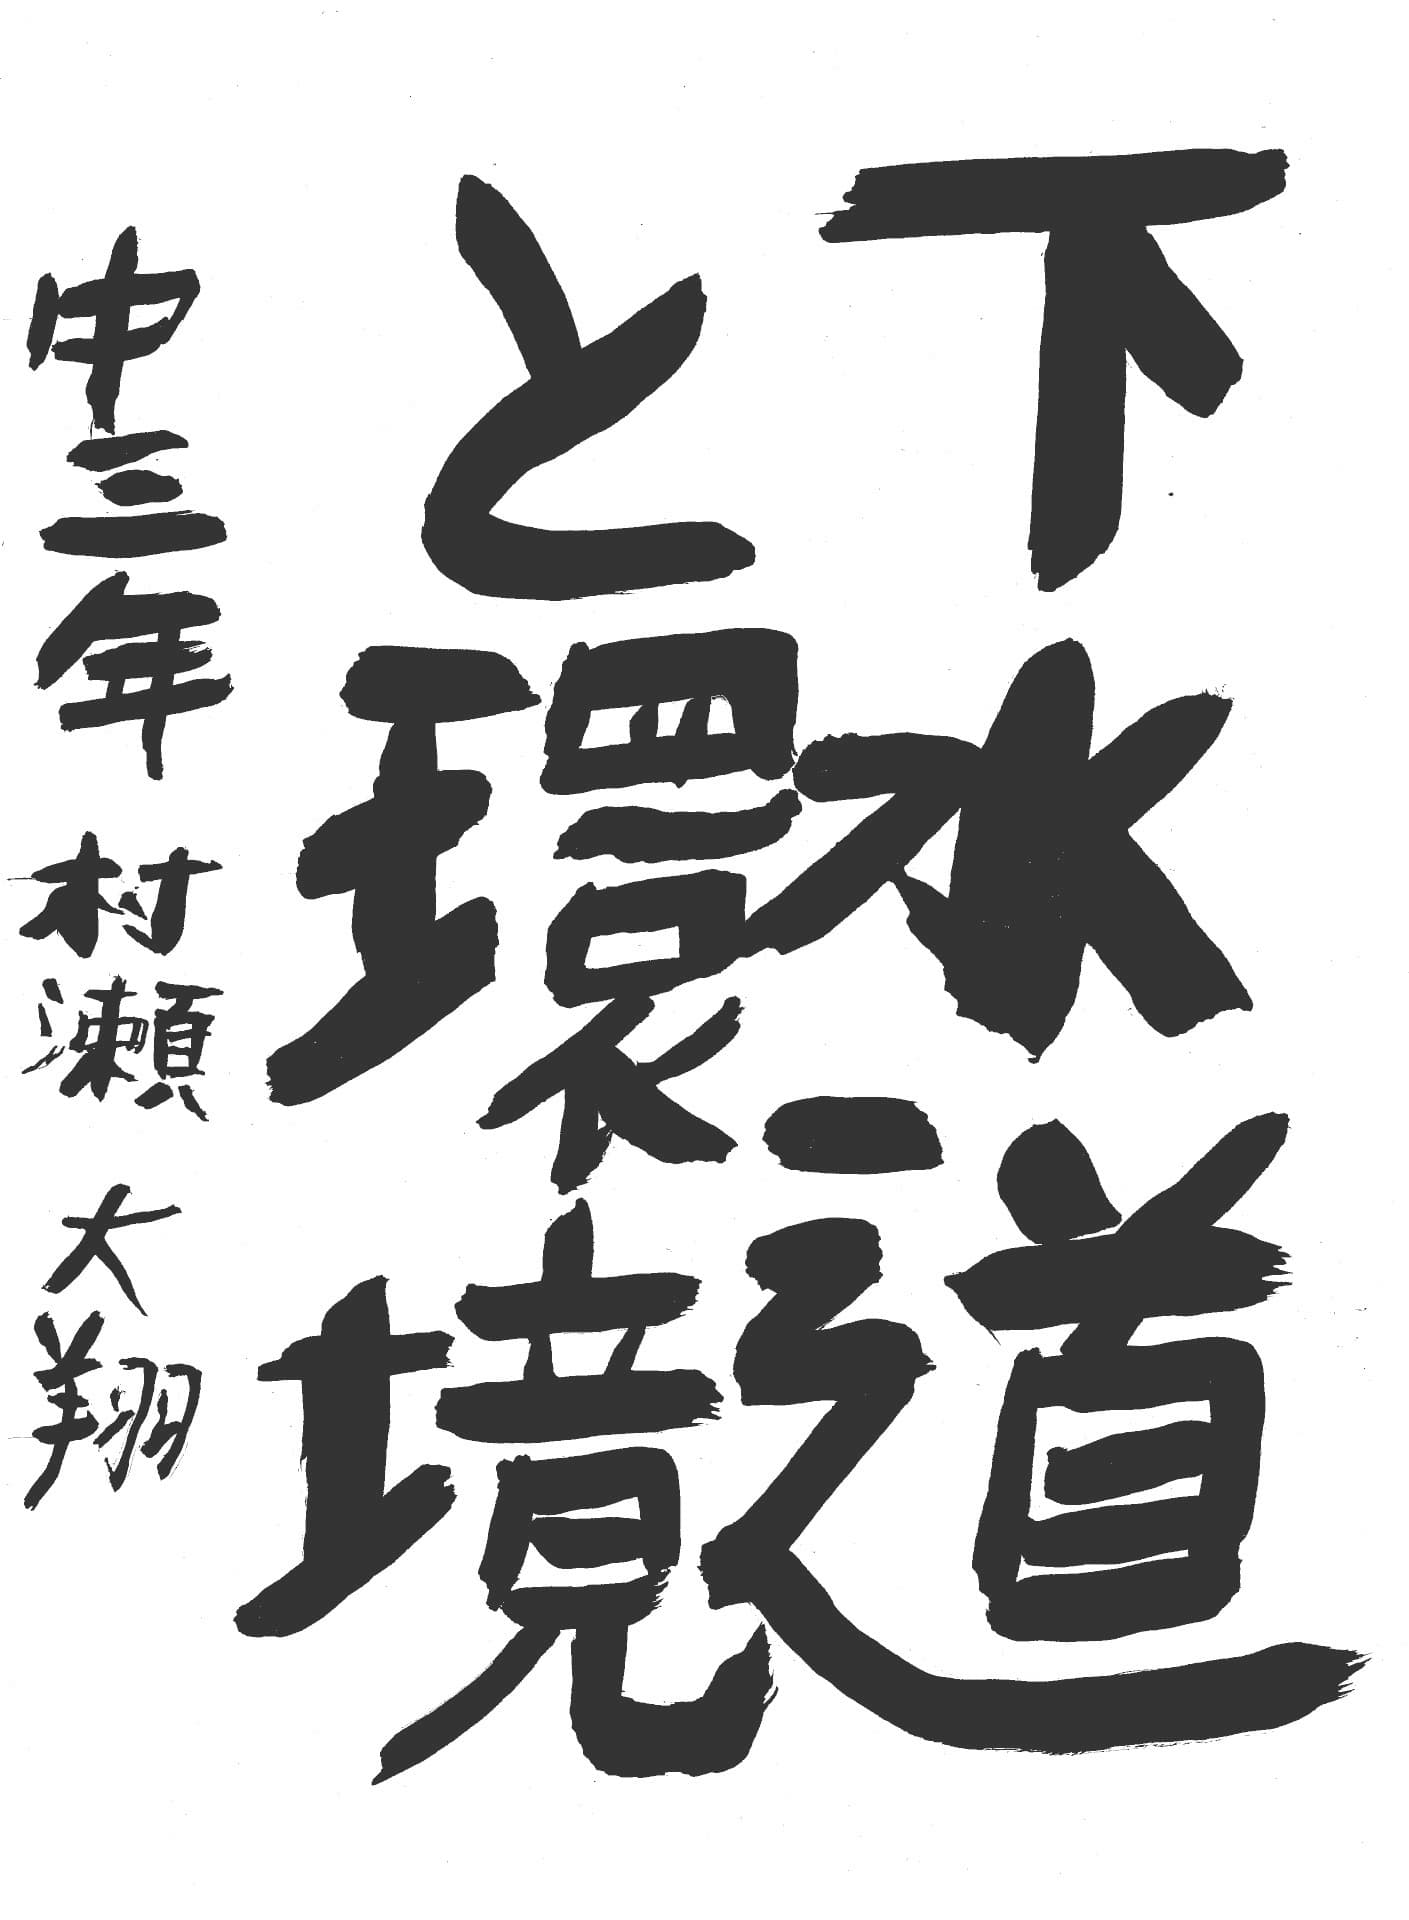 下水道
と環境
中三年 村瀬 大翔